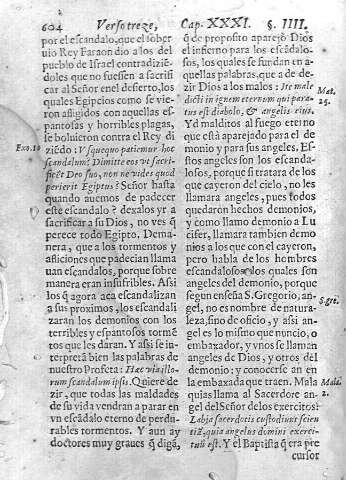 604 Verso treze, Cap. XXXI. §. IIII.
por el escandalo, que el sober
uio Rey Faraon dio a los del
pueblo de Israel contradiziē-
doles que no fuessen a sacrifi
car al Señor en el desierto, los
quales Egipcios como se vie-
ron afligidos con aquellas es-
pantosas y horribles plagas,
se boluieron contra el Rey di
Exo. 10
ziēdo: Vsquequo patiemur hoc
scandalum? Dimitte eos vt sacri-
ficēt Deo suo, non ne vides quod
perierit Egiptus? Señor hasta
quando auemos de padecer
este escandalo? dexalos yr a
sacrificar a su Dios, no ves q̄
perece todo Egipto. Dema-
nera, que a los tormentos y
afliciones que padecian llama
uan escandalos, porque sobre
manera eran insufribles. Assi
los q̄ agora aca escandalizan
a sus proximos, los escandali
zaran los demonios con los
terribles y espantosos tormē
tos que les daran. Y assi se in-
terpreta bien las palabras de
nuestro Profeta: Hac via illo-
rum scandalum ipsis. Quiere de
zir, que todas las maldades
de su vida vendran a parar en
vn escandalo eterno de perdu-
rables tormentos. Y aun ay
doctores muy graues q̄ digā,
q̄ de proposito aparejò Dios
el infierno para los escāda-
losos, los quales se fundan en
aquellas palabras, que a de-
zir Dios a los malos: Ite male
Mat. 25.
dicti in ignem eternum qui para-
tus est diabolo, & angelis eius.
Yd malditos al fuego eterno
que està aparejado para el de
monio y para sus angeles. Es-
stos angeles son los escanda-
losos, porque si tratara de los
que cayeron del cielo, no les
llamara angeles, pues todos
quedaron hechos demonios,
y como llamo demonio a Lu
cifer, llamara tambien demo
nios a los que con el cayeron,
pero habla de los hombres
escandalosos los quales son
angeles del demonio, porque
segun enseña S. Gregorio, an-
S. gre.
gel, no es nombre de natura-
leza, sino de oficio, y assi an-
gel es lo mismo que nuncio, o
embaxador, y vnos se llaman
angeles de Dios, y otros del
demonio: y conocerse an en
la embaxada que traen. Mala
Mala. 2.
quias llama al Sacerdote an-
gel del Señor de los exercitos:
Labia sacerdotis custodiunt scien
tiā, quia angelus domini exerci-
tuū est. Y el Baptista q̄ era pre
cursor